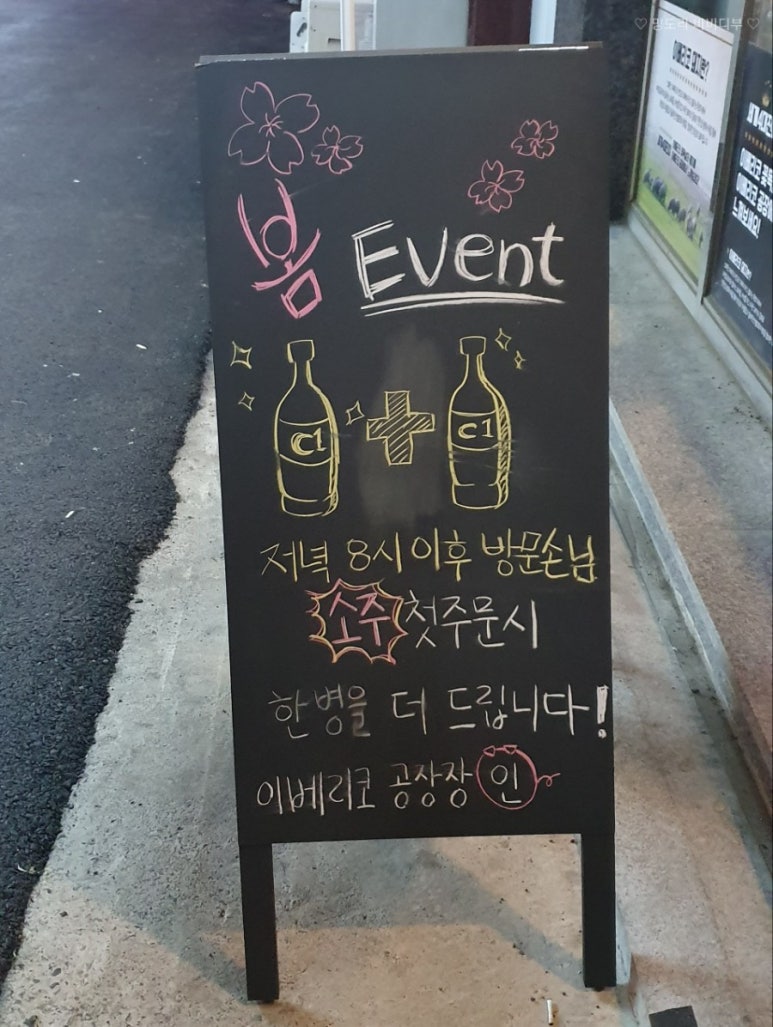 봄 Event
C1 + C1
저녁 8시 이후 방문손님
소주 첫주문시
한병을 더 드립니다!
이베리코 공장장 인
이베리코 돼지란?